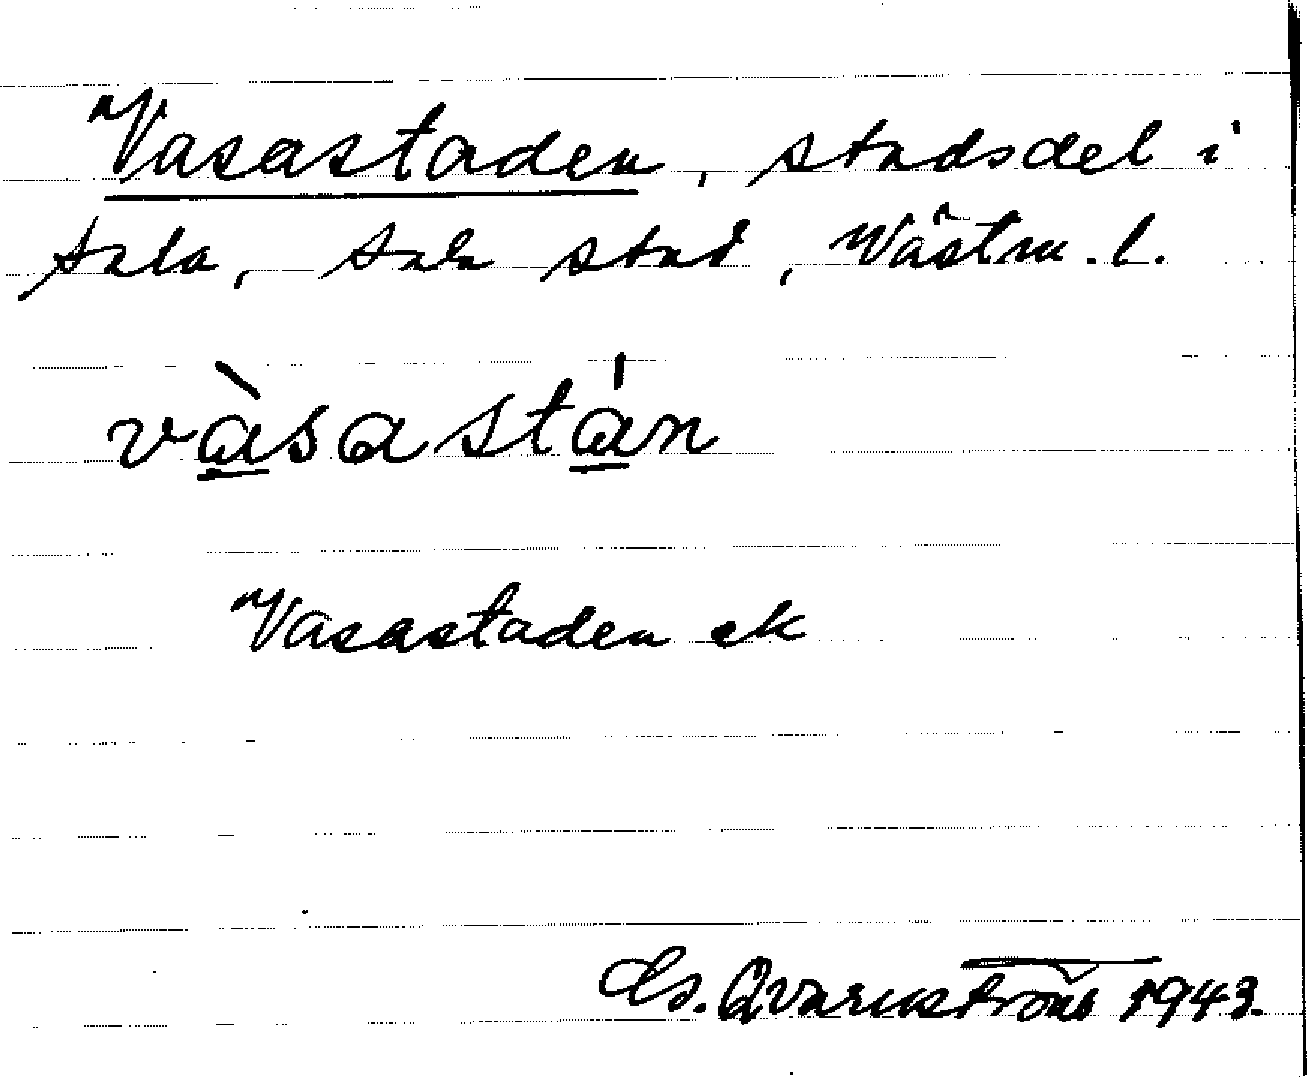 Vasastaden, stadsdel i
Sala, Sala stad, Västm. l.
vàsastán
Vasastaden ek
Cs. Qvarnström 1943.